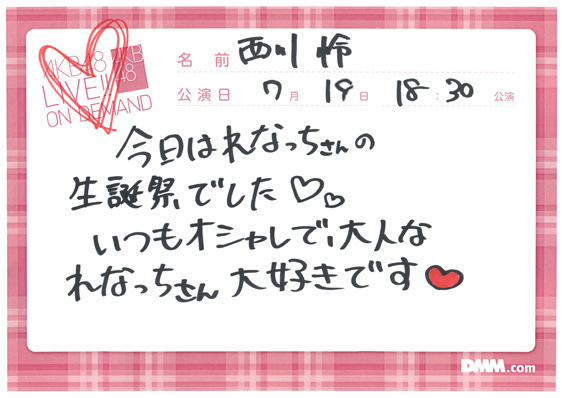 AKB48
LIVE!!
ON DEMAND
AKB
48
名前 西川怜
公演日 7月 19日 18:30 公演
今日はれなっちさんの
生誕祭でした♡♡
いつもオシャレで、大人な
れなっちさん大好きです♥
DMM.com